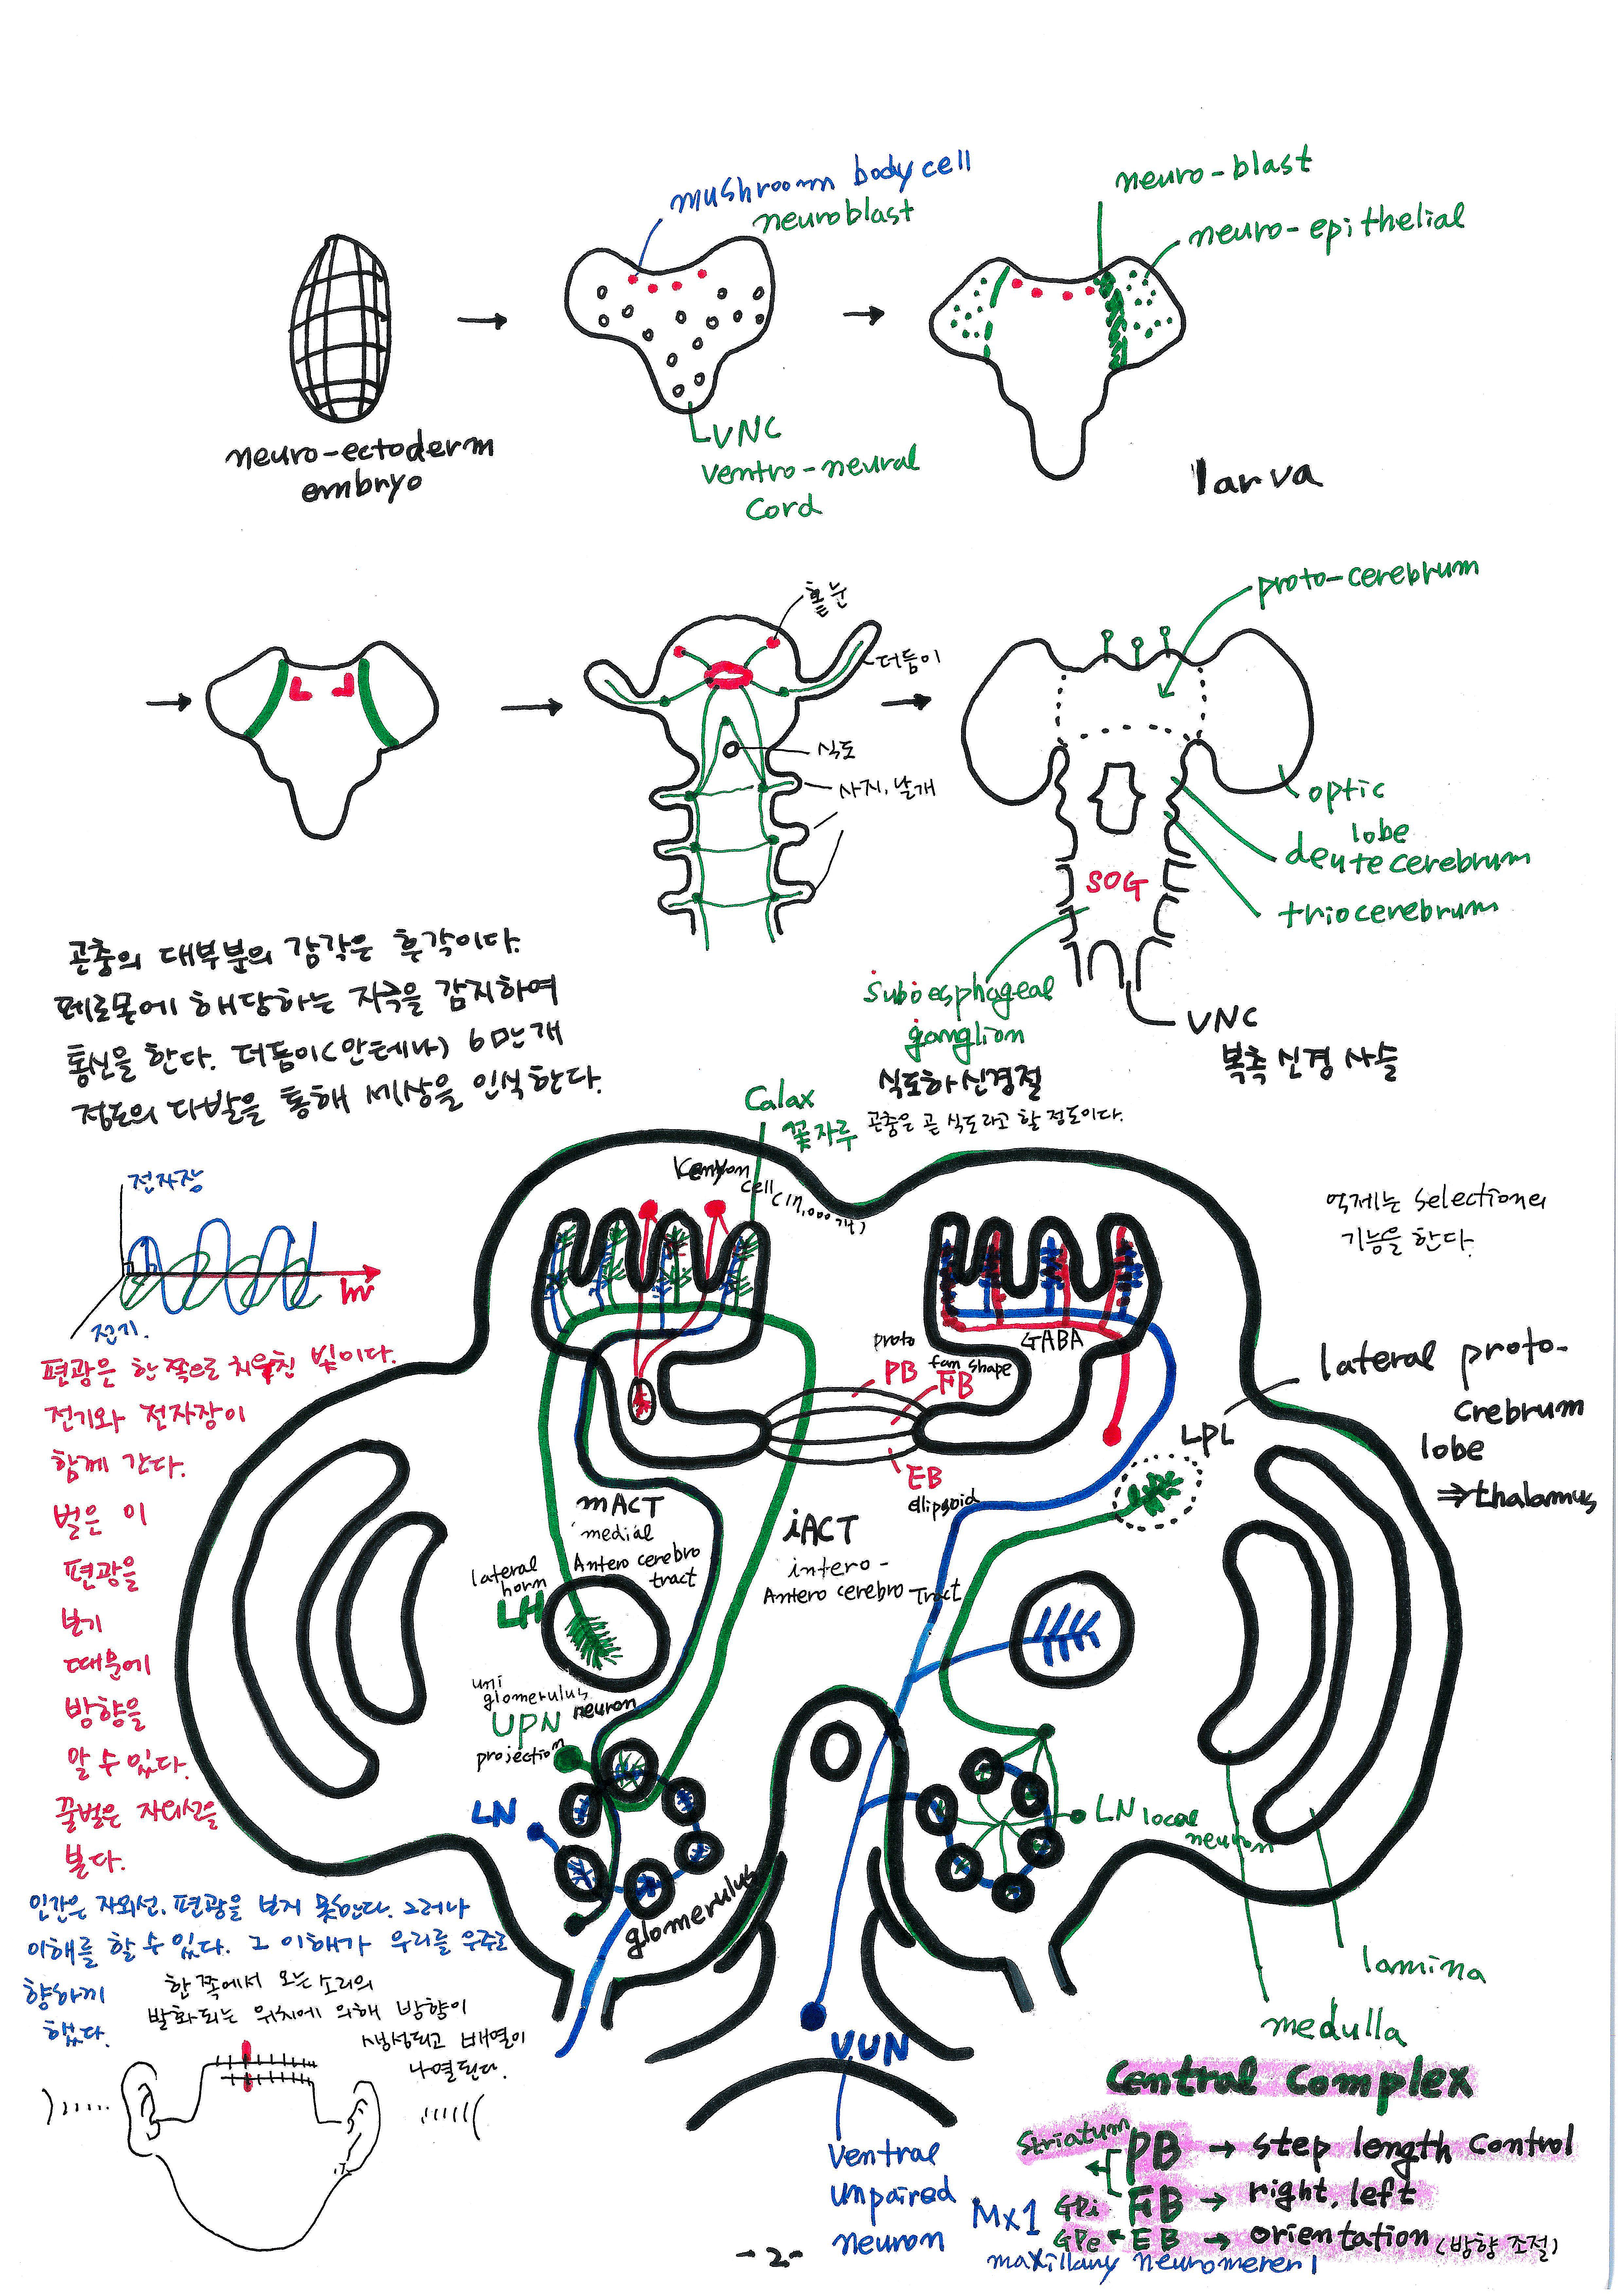 mushroom body cell
neuroblast
neuro-blast
neuro-epithelial
neuro-ectoderm
embryo
VNC
ventro-neural
cord
larva
홑눈
더듬이
식도
사지, 날개
proto-cerebrum
optic
lobe
deutecerebrum
triocerebrum
SOG
suboesphageal
ganglion
식도하신경절
곤충은 곧 식도라고 할 정도이다.
VNC
복측 신경 사슬
곤충의 대부분의 감각은 후각이다.
페로몬에 해당하는 자극을 감지하여
통신을 한다. 더듬이(안테나) 6만개
정도의 다발을 통해 세상을 인식한다.
Calax
꽃자루
Kenyon
cell
(17,000개)
억제는 selectioner
기능을 한다.
전자장
전기.
hν
편광은 한 쪽으로 치우친 빛이다.
전기와 전자장이
함께 간다.
벌은 이
편광을
보기
때문에
방향을
알 수 있다.
꿀벌은 자외선을
본다.
proto
PB
fan shape
FB
GABA
EB
ellipsoid
LPL
lateral proto-
crebrum
lobe
⇒thalamus
mACT
medial
Antero cerebro
tract
iACT
intero-
Antero cerebro Tract
lateral
horn
LH
uni
glomerulus
UPN neuron
projection
LN
glomerulus
LN local
neuron
lamina
medulla
인간은 자외선, 편광을 보지 못한다. 그러나
이해를 할 수 있다. 그 이해가 우리를 우주로
향하게
했다.
한 쪽에서 오는 소리의
발화되는 위치에 의해 방향이
생성되고 배열이
나열된다.
VUN
ventral
unpaired
neuron
Central Complex
Striatum PB → step length control
GPi FB → right, left
GPe ← EB → orientation (방향 조절)
Mx1
maxillary neuromerer 1
-2-